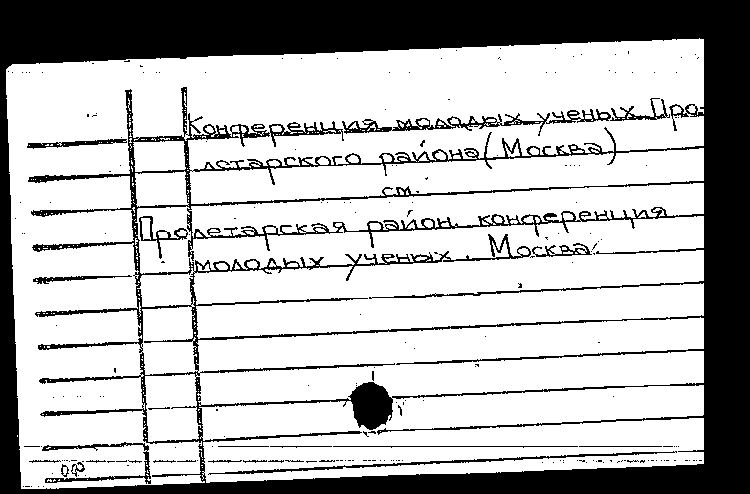 Конференция молодых ученых Про-
летарского района (Москва)
см.
Пролетарская район. конференция
молодых ученых. Москва.